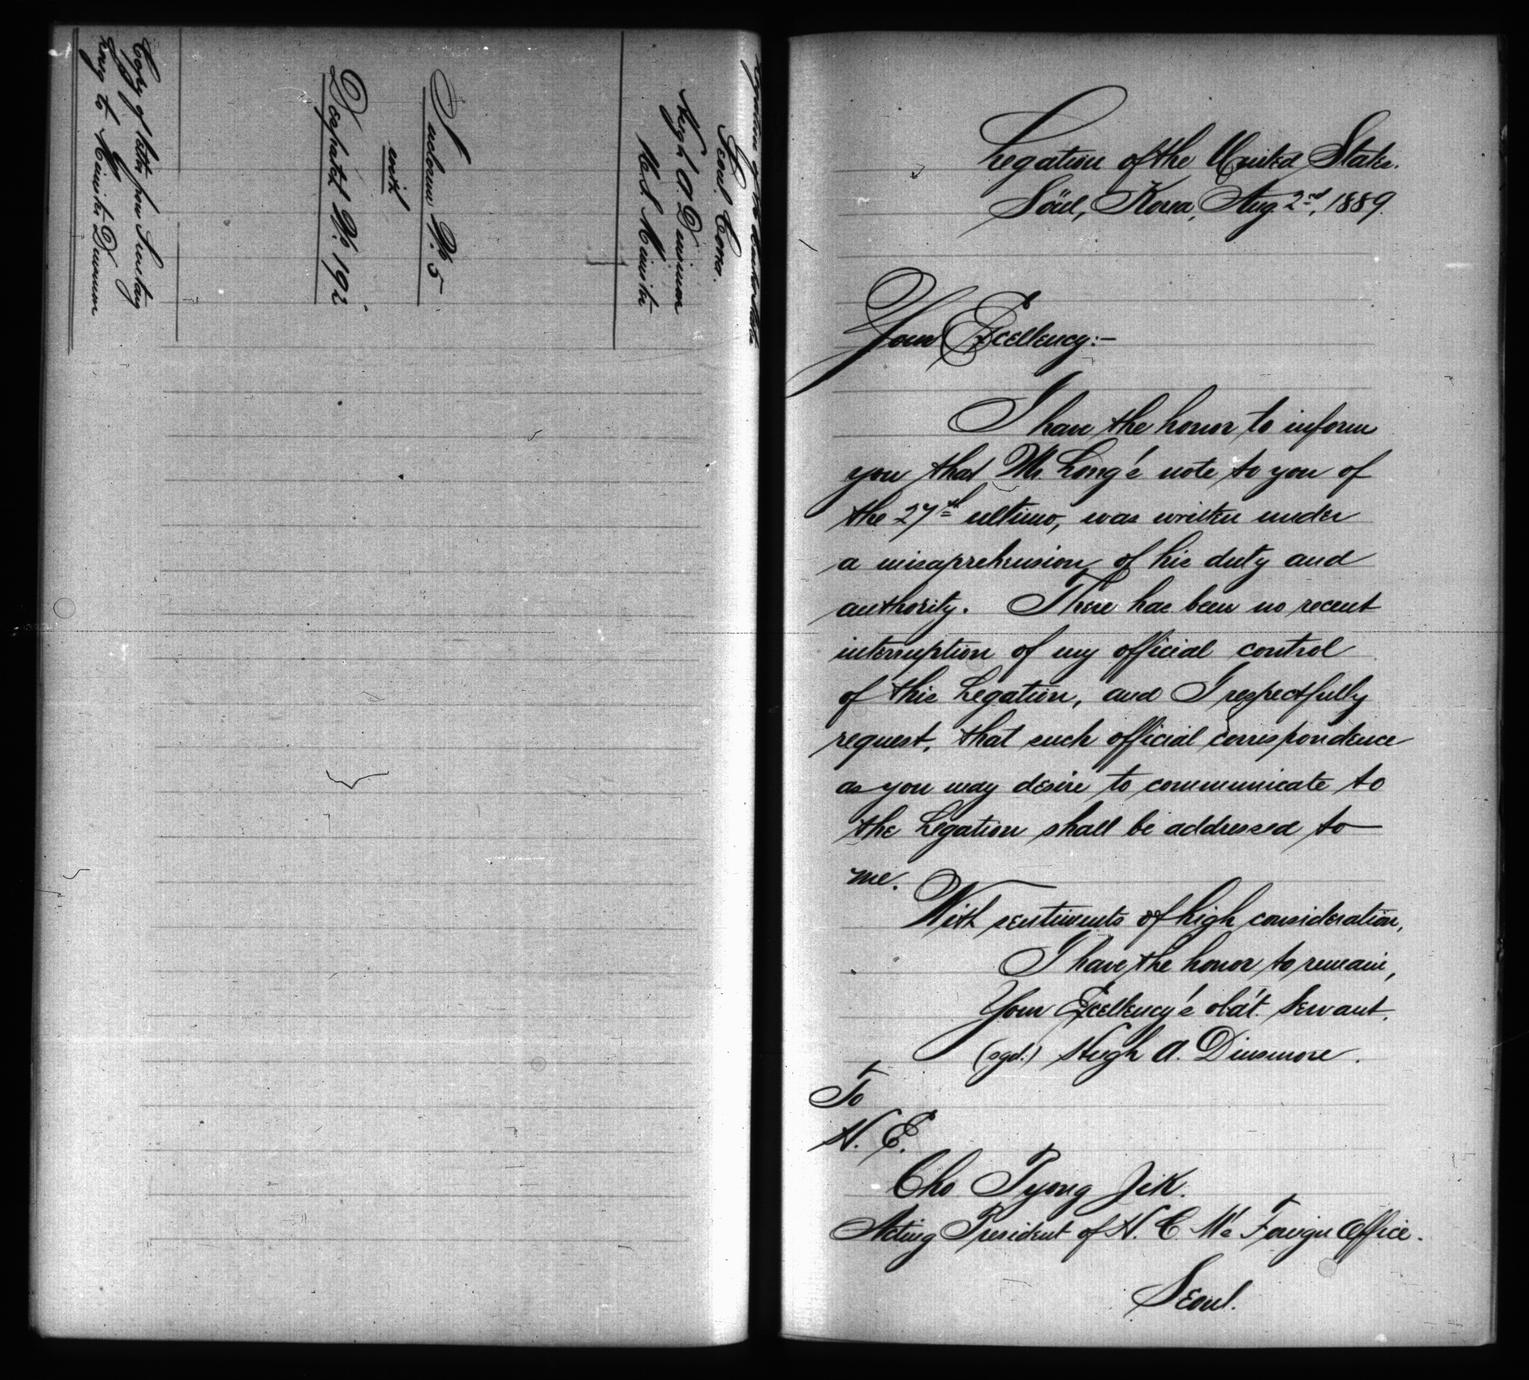 Legation of the United States
Seoul, Corea.
Hugh A. Dinsmore
U.S. Minister
Inclosure No. 5
with
Dispatch No. 192
Copy of letter from Secretary
Long to Minister Dinsmore
Legation of the United States.
Söul, Korea, Aug. 2nd, 1889.
Your Excellency:—
I have the honor to inform
you that Mr. Long's note to you of
the 27th ultimo, was written under
a misaprehension of his duty and
authority. There has been no recent
interruption of my official control
of this Legation, and I respectfully
request, that such official correspondence
as you may desire to communicate to
the Legation shall be addressed to
me.
With sentiments of high consideration,
I have the honor to remain,
Your Excellency's obd't. Servant.
(sgd.) Hugh A. Dinsmore.
To
H. E.
Cho Pyong Jik.
Acting President of H. C. M's Foreign Office.
Seoul.